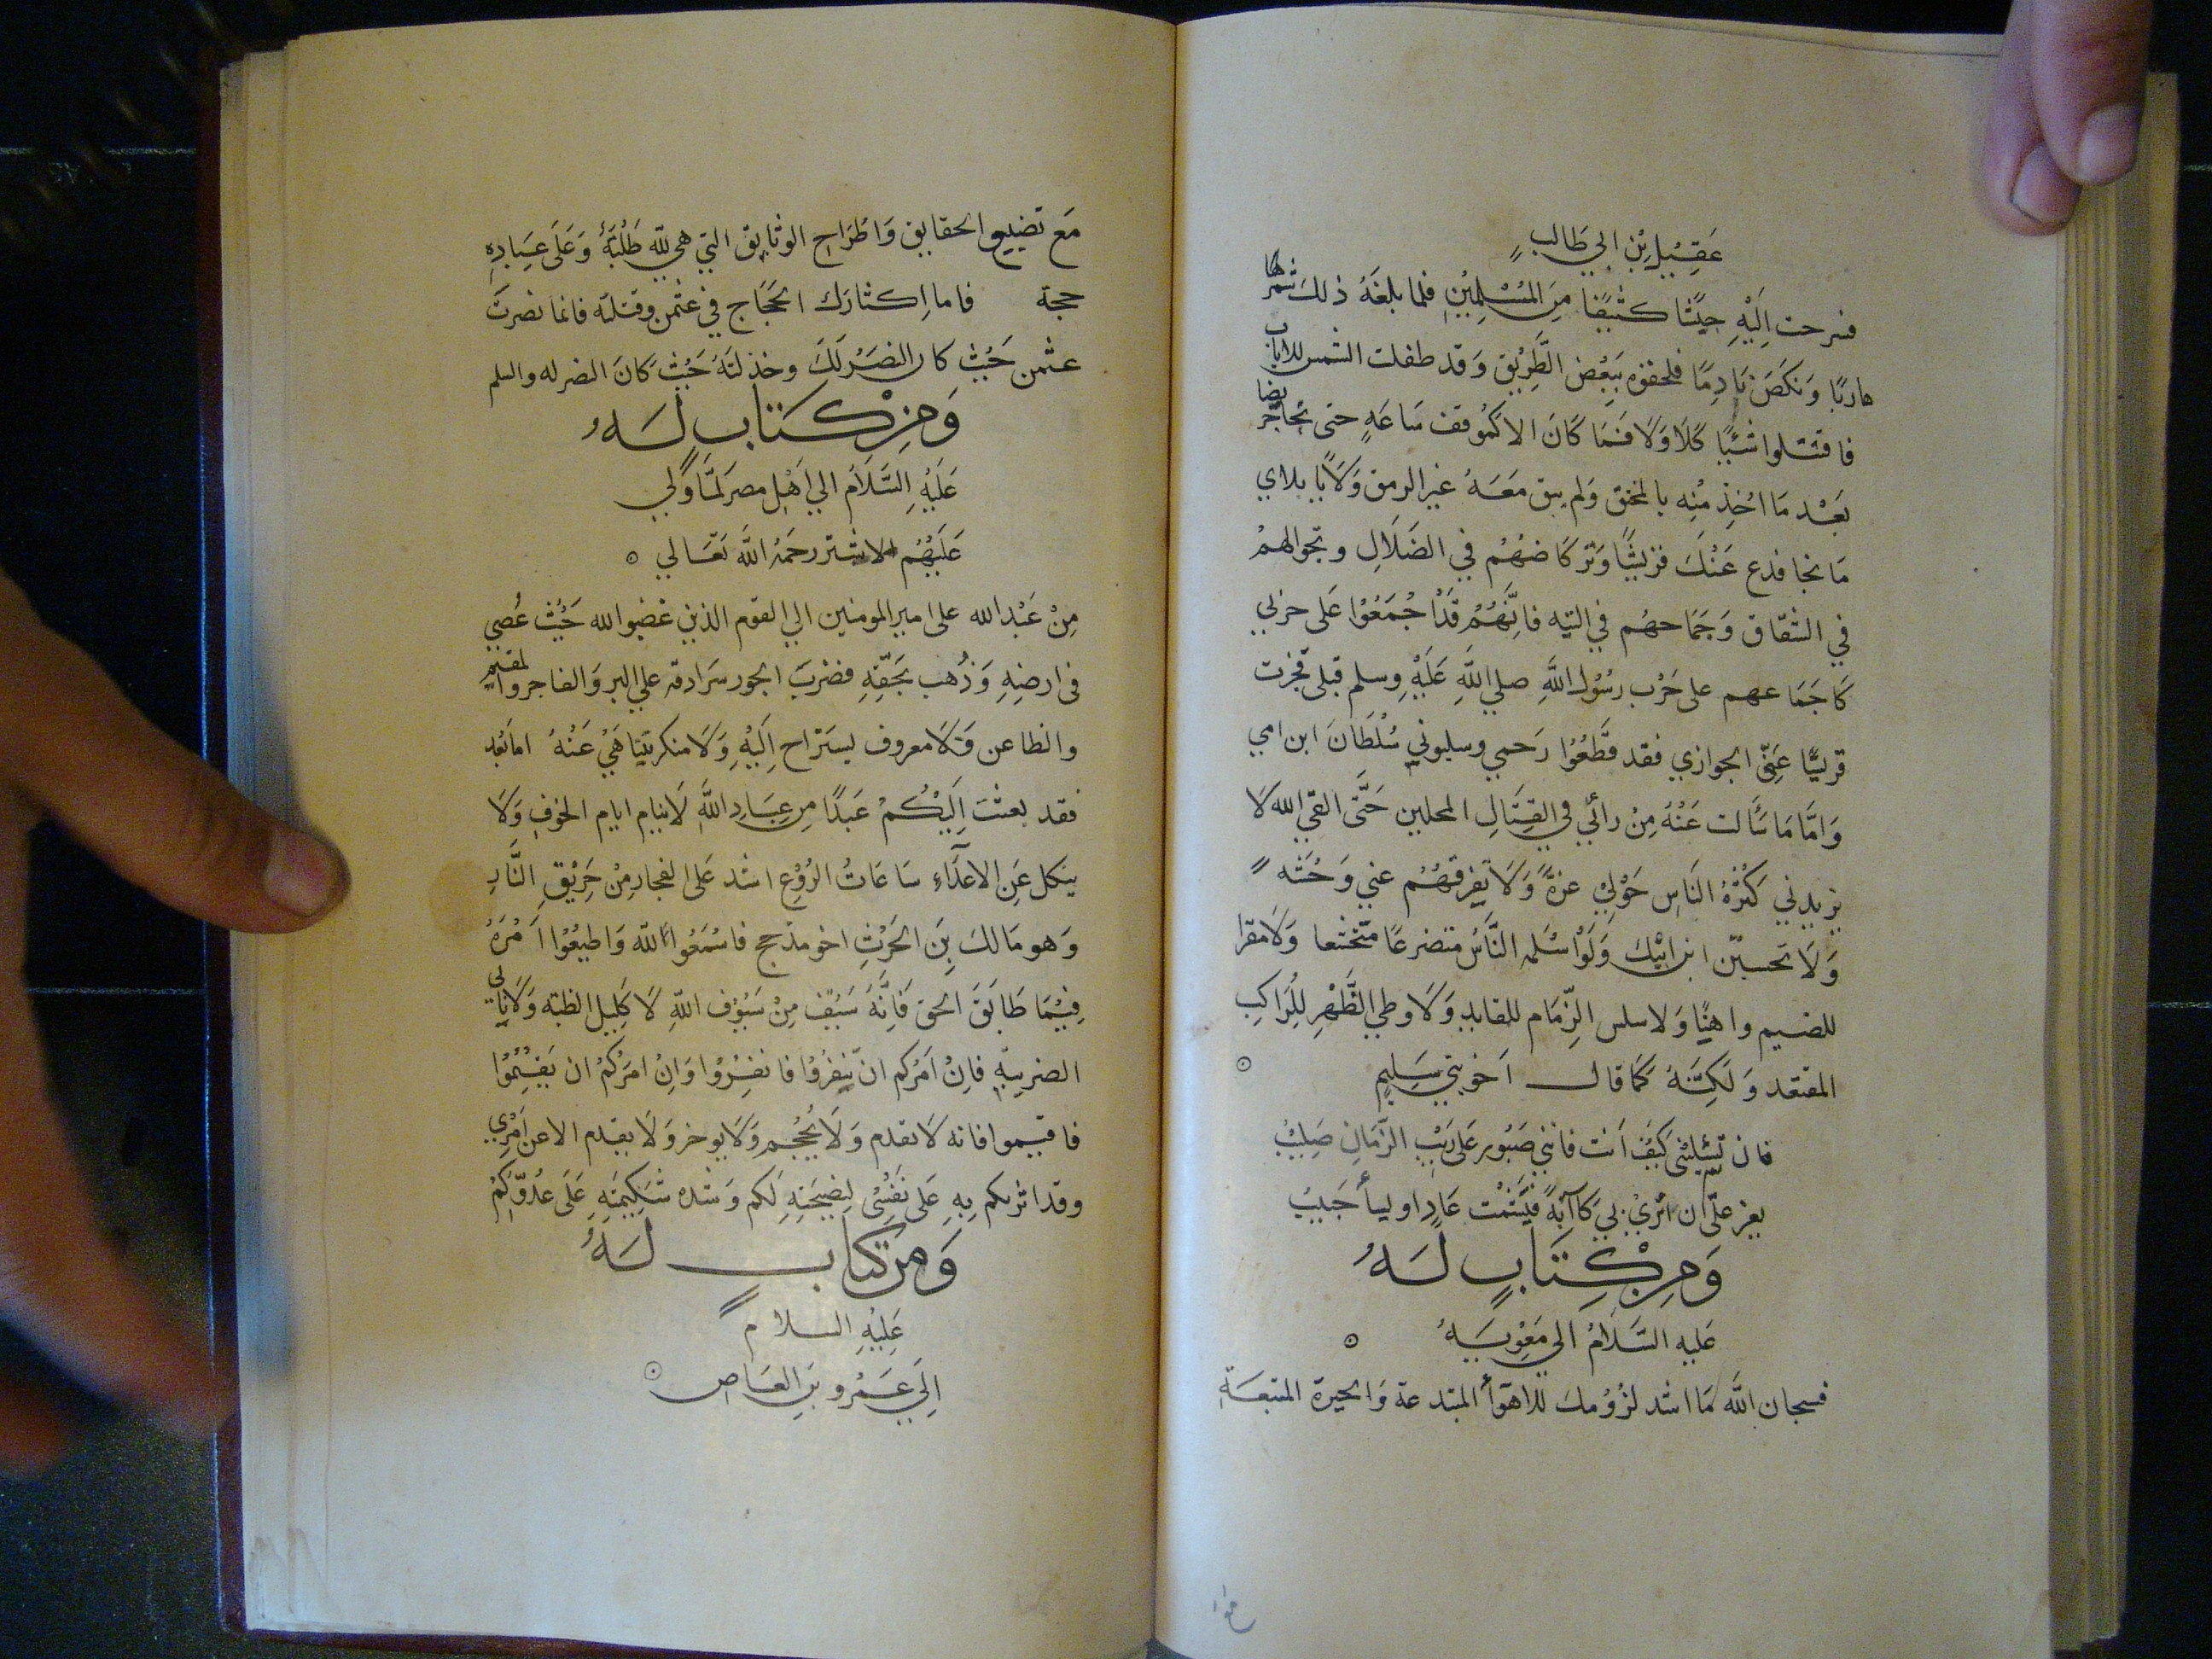 عَقِيْلِ بْنِ ابي طَالبٍ
فسرحت اِلَيْهِ جيْشًا كثيفًا مِنَ المُسْلِمِيْنِ فلما بلغَهُ ذلكَ شمر
ها
هاربًا وَنكَصَ نَادِمًا فلحقوه بِبَعْض الطَّرِيْق وَقد طفلت الشمس للاياب
فاقتتلوا شَيْئًا كَلَا وَلَا فَمَا كَانَ الا كمَوقف سَاعَةٍ حتى نجا جر
يضا
بَعْد مَا اُخِذ مِنْه بالمخنق وَلم يبق معَهُ غير الرمق وَلَايًا بلاي
مَا نجا فدع عَنْكَ قريشًا وَتركَاضهُمْ في الضَلَالِ وتجوالهمْ
في الشقاق وَجمَاحهُم في التيه فانَّهُمْ قَدْ اجْمَعُوْا عَلى حربي
كَاجمَاعهم على حَرْب رسُوْل اللَّهِ صلي اللَّهِ عَلَيْهِ وسلم قبلى فجزت
قريشًا عَنِّى الجوازي فقد قَطَعُوْا رَحمي وسلبوني سُلْطَانَ ابن امي
وَامَّا مَا سَألت عَنْهُ مِنْ رائي في القِتَالِ المحلين حَتَّى القي الله لَا
يزيدني كَثْرةُ النَاسِ حَوْلِيْ عزةً وَلَا تفرقهُمْ عني وَحْشَه
وَلَا تحسبنّ ابن ابيْكَ وَلَوْ اسْلمه النَّاسُ متضرعًا متخشعا وَلَا مقرا
للضيم واهنًا وَلا سلس الزِّمَام للقايد وَلَا وطي الظَّهْرِ لِلرَاكبِ
المقتعد وَلَكِنَّهُ كمَا قال اَخو بني سَلِيمٍ
فان تسْئليْنى كَيْفَ اَنت فانني صَبُور عَلى رَيْبِ الزّمَانِ صَلِيْبُ
يعز علَّى ان تُرىْ بي كَآبَةً فَيَشمُت عَادٍ او يسأ حَبيْبُ
وَمِنْ كِتَابٍ لَهُ
عَليه السَّلَامُ الي مَعْوِيَهُ
فسبحان اللَّه مَا اشد لزُوْمك للاهَوَأ المبتدعة وَالحيرة المتبعَةِ
مَع تضييع الحقايق وَاطِّرَاح الوثايق التي هي للَّه طَلْبَةً وَعَلى عِبَادِه
حجة فاما اِكثارك الحجَاج في عثمن وقتلته فانما نصرتَ
عثمن حَيْث كان النصرُ لَكَ وخذلتَهُ حَيْث كَانَ النصر له والسلم
وَمِنْ كتابٍ لَهُ
عَلَيْهِ السَّلَامُ الي اَهْلِ مصر لَمَّا وَلي
عَلَيْهُمُ الاشتر رحمَهُ اللَّه تَعَالي
مِنْ عَبْد الله على امير المومنين الي القوم الذين غضبوا لله حَيْثُ عُصِي
فى ارضِهِ وَذُهِب بحَقِّهِ فضَربَ الجور سَرَادقه علي البر وَالفاجر والمقيم
والظاعن فَلَا معروف يستَرَاح اِلَيْهِ وَلَا منكر يتنَاهَيْ عَنْهُ امابَعْد
فقد بعثت اِلَيْكُمْ عَبدًا مِن عِبَادِ اللَّهِ لَا ينام ايام الخوفِ وَلَا
ينكل عَنِ الاعدَآءِ سَاعَاتُ الرُوْعِ اشد عَلى الفجار مِنْ حَرِيْقِ النَّارِ
وَهو مَالكَ بِنَ الحَرْثِ اخو مذحج فاسْمَعُوا للَّه وَاطيعُوْا اَمْرَهُ
فِيْمَا طَابَقَ الحق فَانَّهُ سَيْفٌ مِنْ سَيُوْف اللَّهِ لَا كَلِيل الظبَه وَلَا نَابي
الضريبهِ فاِنْ اَمركم انْ تنفرُوْا فانفِرُوْا وَاِنْ امرَكُمْ ان تقِيْمُوْا
فاقيموا فانه لَا يقدم وَلَا يُحْجم وَلَا يوخر وَلَا يقدم الا عن اَمْرِي
وقد اثرتكم بِهِ عَلى نَفْسِىْ لنِصِيحَتِهِ لَكم وَشده شَكِيمَتِهِ عَلَى عَدُوِّكمْ
وَمن كتابٍ لَهُ
عَلَيْهِ السلام
اِلَي عَمْرو بْنِ العَاص